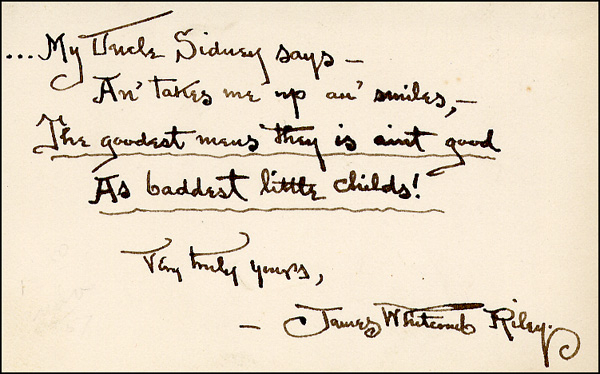 ...My Uncle Sidney says —
An' takes me up an' smiles, —
The goodest mens they is aint good
As baddest little childs!
Very truly yours,
— James Whitcomb Riley.